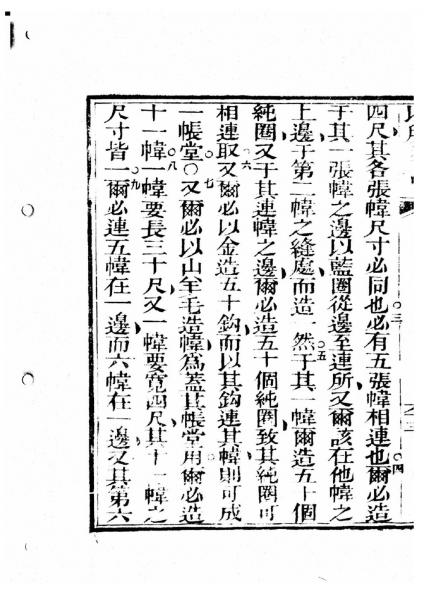 四尺其各張幃尺寸必同也必有五張幃相連也爾必造
于其一張幃之邊以藍圈從邊至連所又爾該在他幃之
上邊于第二幃之縫處而造一然于其一幃爾造五十個
純圈又于其連幃之邊爾必造五十個純圈致其純圈可
相連取又爾必以金造五十鈎而以其鈎連其幃則可成
一帳堂〇又爾必以山羊毛造幃為蓋其帳堂用爾必造
十一幃一幃要長三十尺又一幃要寬四尺其十一幃之
尺寸皆一爾必連五幃在一邊而六幃在一邊又其第六